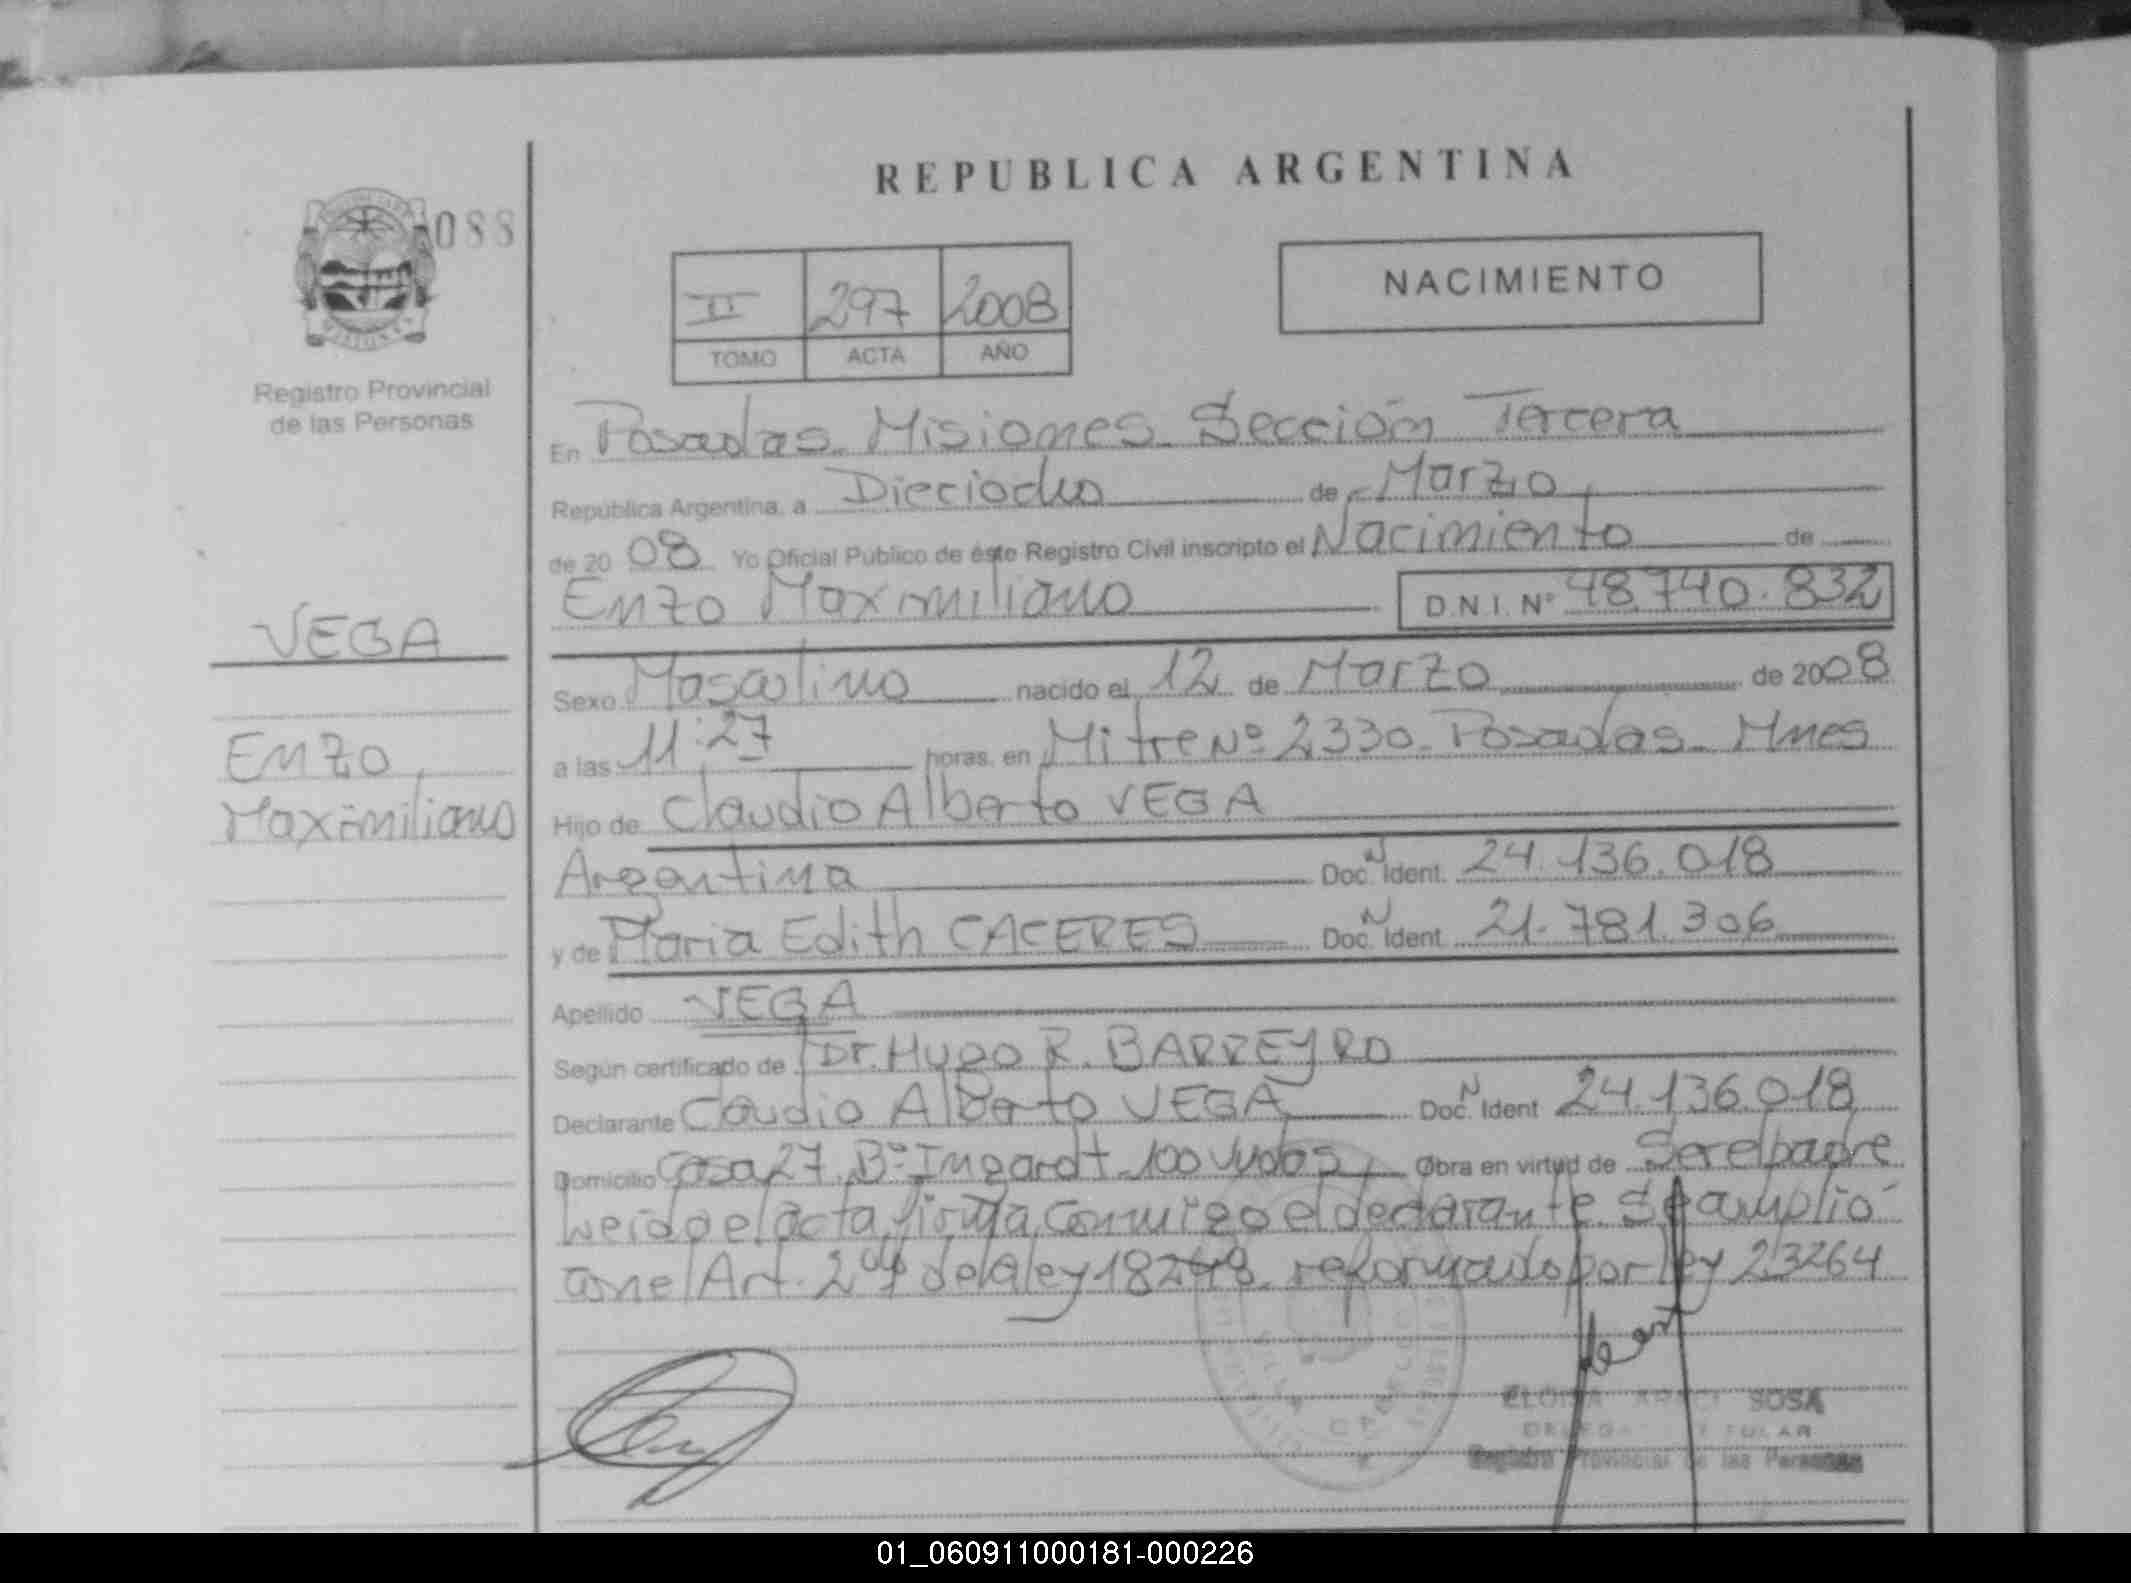 REPUBLICA ARGENTINA
088
II 297 2008
TOMO ACTA AÑO
NACIMIENTO
Registro Provincial
de las Personas
En Posadas Misiones Sección Tercera
República Argentina, a Dieciocho de Marzo
de 2008 Yo Oficial Público de éste Registro Civil inscripto el Nacimiento de
Enzo Maximiliano D.N.I. Nº 48.740.832
VEGA
Enzo
Maximiliano
Sexo Masculino nacido el 12 de Marzo de 2008
a las 11:27 horas, en Mitre Nº 2330 Posadas Mnes
Hijo de Claudio Alberto VEGA
Argentina Doc. N Ident. 24.136.018
y de Maria Edith CACERES Doc. N Ident. 21.781.306
Apellido VEGA
Según certificado de Dr. Hugo R. BARREYRO
Declarante Claudio Alberto VEGA Doc. N Ident 24.136.018
Domicilio Casa 27 Bº 100 Vvdas Obra en virtud de Ser el padre
Leida el acta, firma conmigo el declarante Se amplió
con el Art. 2º de la ley 18248 reformado por ley 23264
ELOISA SOSA
Registro Provincial de las Personas
01_060911000181-000226